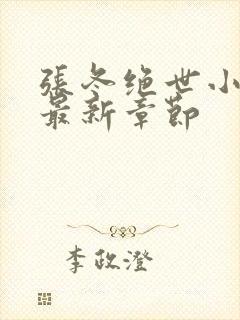 張冬绝世小
最新章節
李政澄